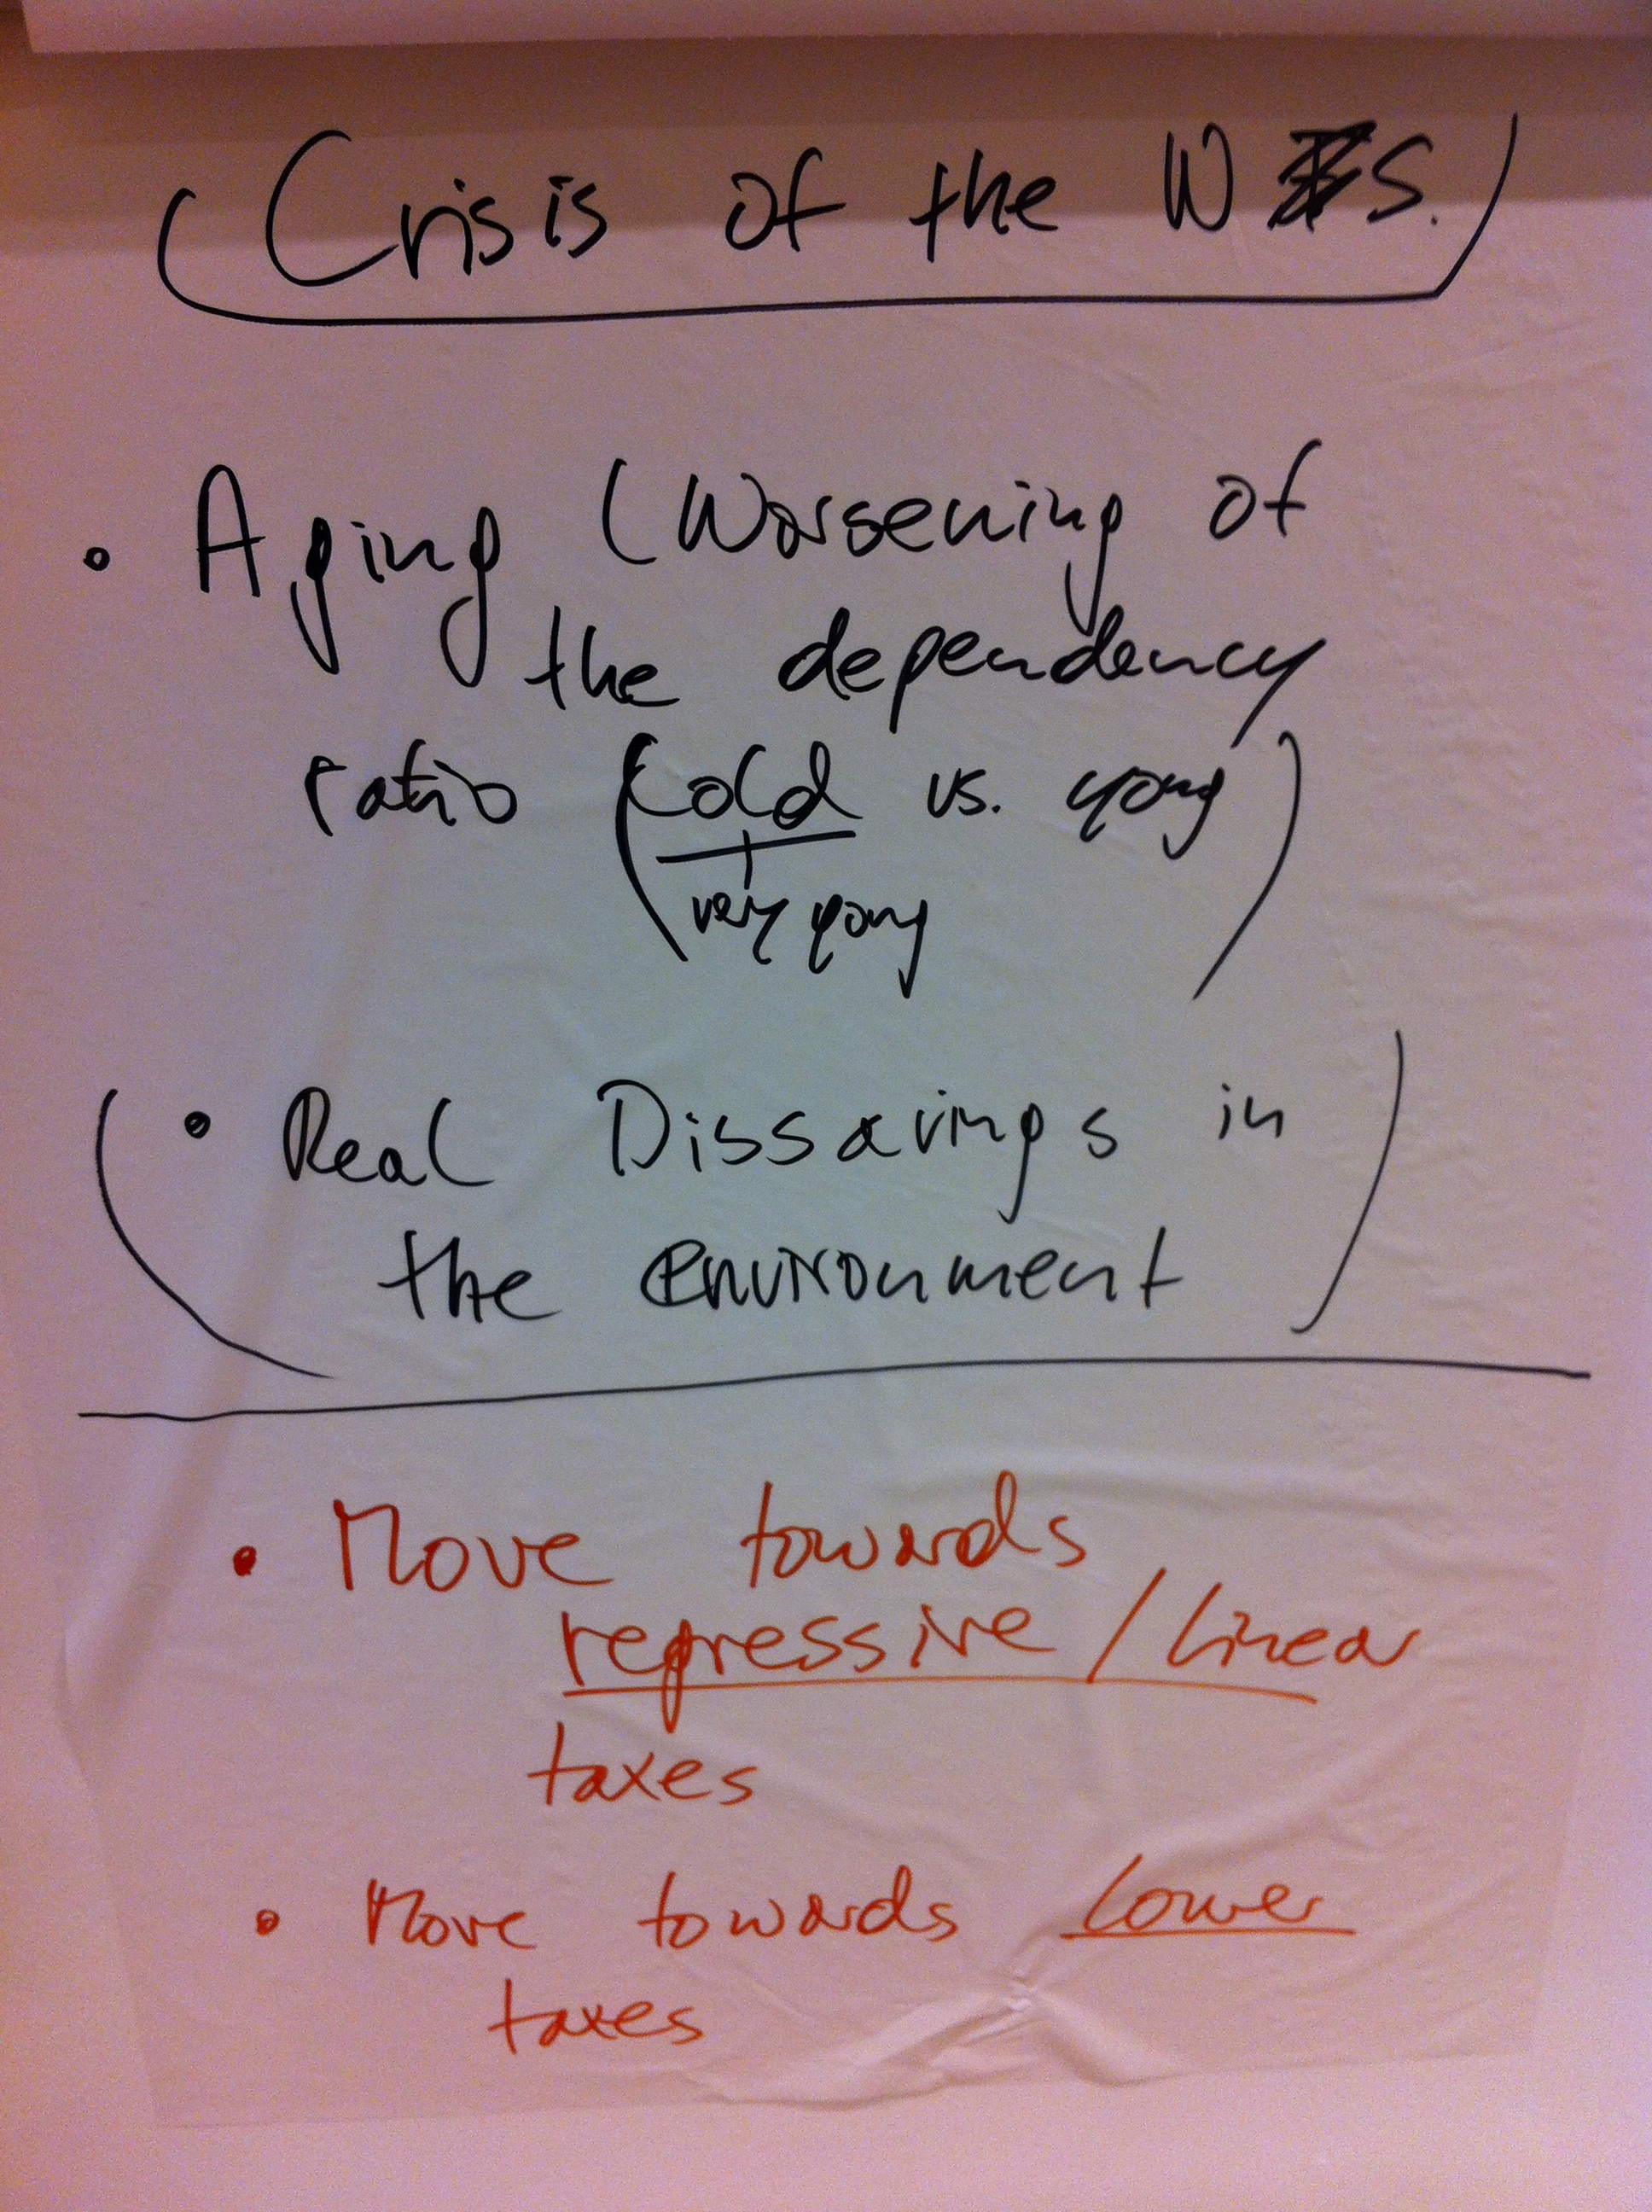 Crisis of the W S.
• Aging (Worsening of
the dependency
ratio (old vs. yong)
+
very yong
(• Real Dissavings in
the environment)
• Move towards
regressive / linear
taxes
• Move towards lower
taxes